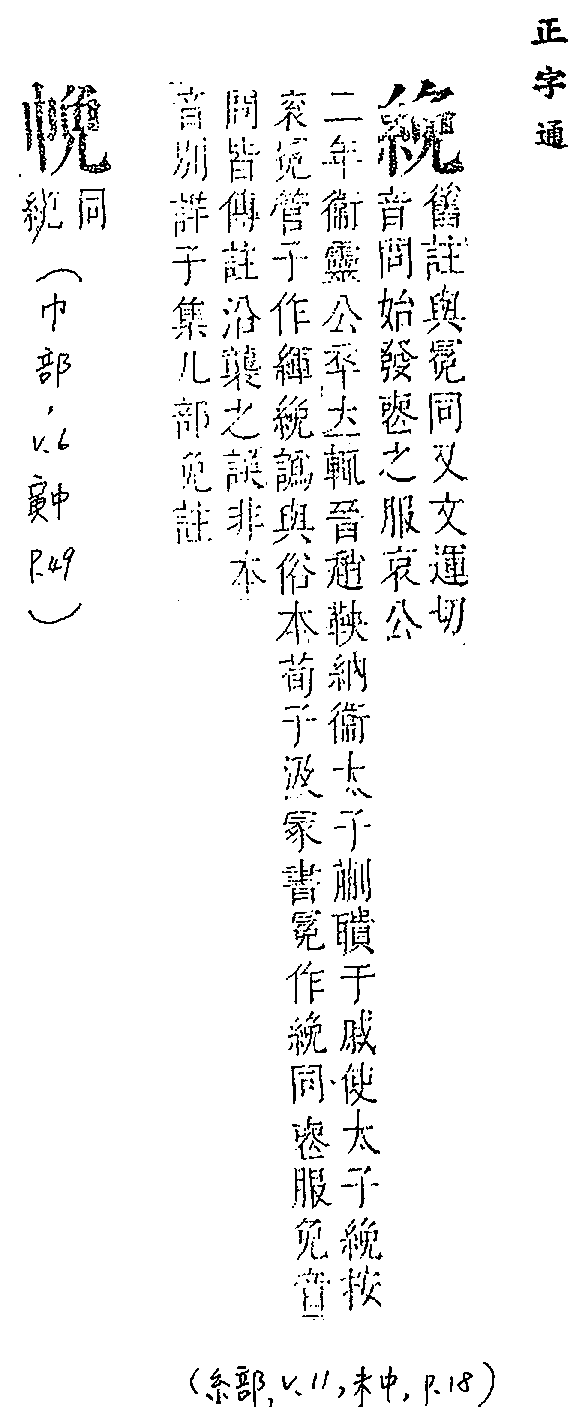 正字通
絻
舊註與冕同又文運切
音問始發喪之服哀公
二年衞靈公卒大輒晉趙鞅納衞太子蒯聵于戚使太子絻按
袞冕管子作緷絻譌與俗本荀子汲冢書冕作絻同喪服免音
問皆傳註沿襲之誤非本
音別詳子集儿部免註
(糸部, v.11, 未中, p.18)
㡈
同
絻
(巾部, v.6 寅中 p.49)